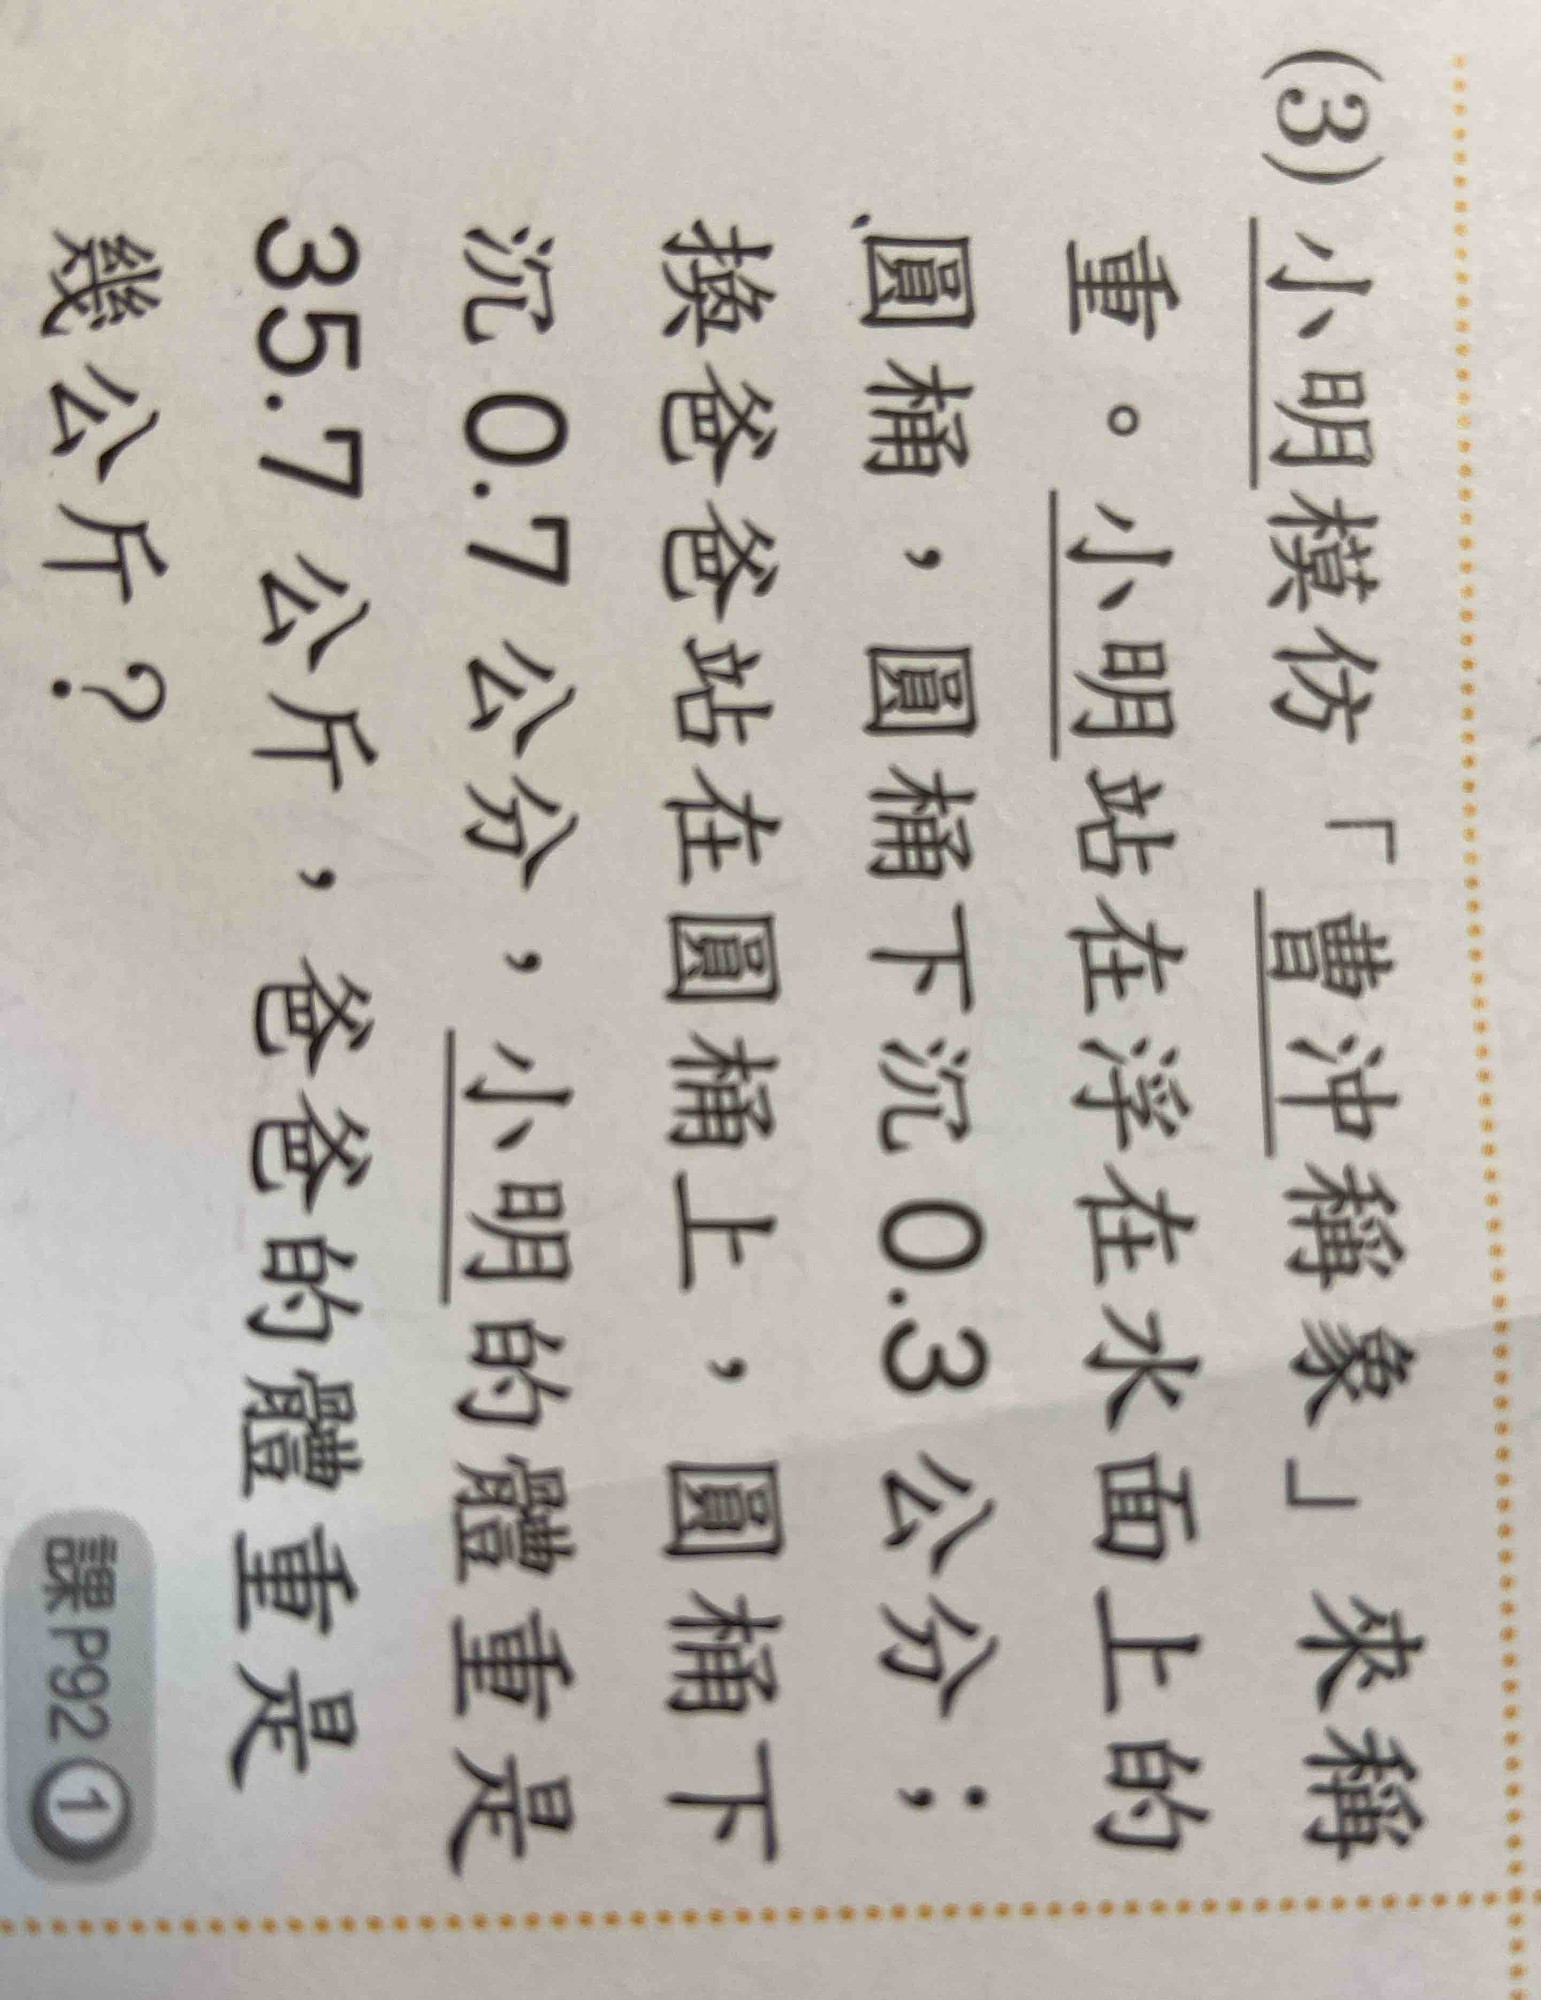 (3) 小明模仿「曹沖稱象」來稱
重。小明站在浮在水面上的
圓桶，圓桶下沉0.3公分；
換爸爸站在圓桶上，圓桶下
沉0.7公分，小明的體重是
35.7公斤，爸爸的體重是
幾公斤？
課P92①